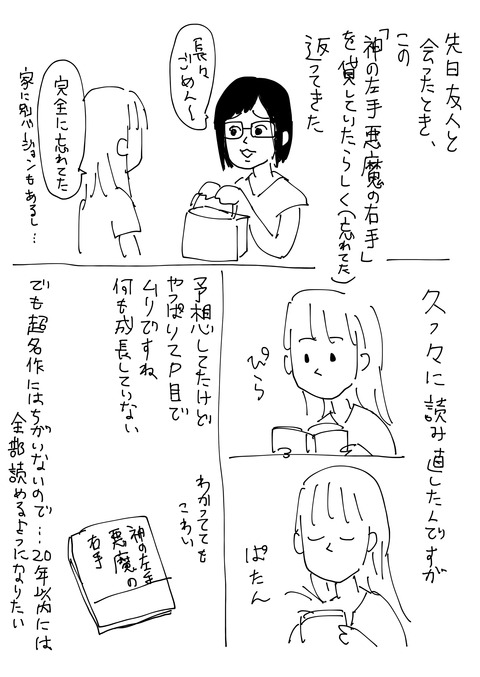 先日友人と
会ったとき、
この
「神の左手悪魔の右手」
を貸していたらしく(忘れてた)
返ってきた
長々
ごめん〜
完全に忘れてた
家に別バージョンもあるし…
久々に読み直したんですが
ぴら
ぱたん
予想してたけど
やっぱり2P目で
ムリですね
何も成長していない
わかってても
こわい
神の左手
悪魔の
右手
でも超名作にはちがいないので…20年以内には
全部読めるようになりたい